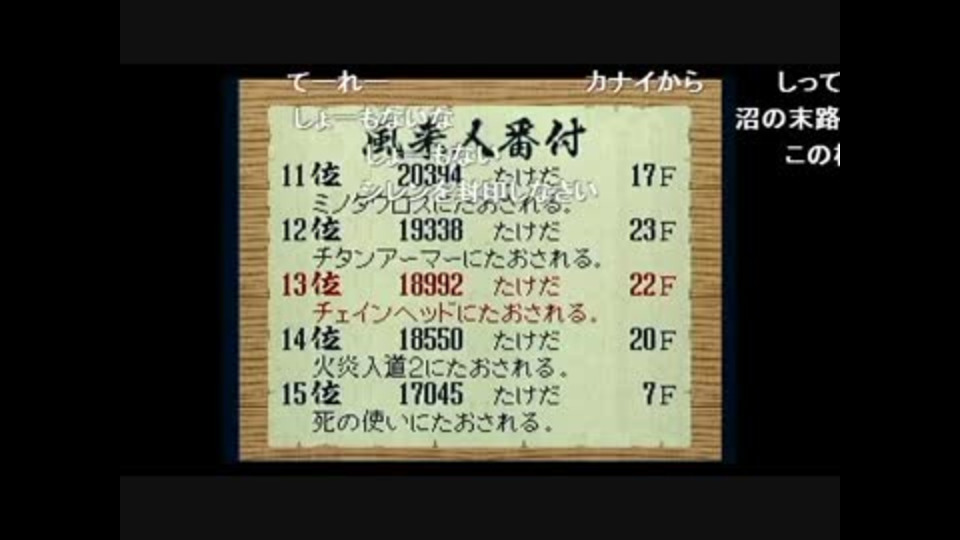 てーれー
カナイから
しって
しょーもないな
沼の末路
風来人番付
しょーもない
このね
11位 20394 たけだ 17F
シレンを封印しなさい
ミノタウロスにたおされる。
12位 19338 たけだ 23F
チタンアーマーにたおされる。
13位 18992 たけだ 22F
チェインヘッドにたおされる。
14位 18550 たけだ 20F
火炎入道2にたおされる。
15位 17045 たけだ 7F
死の使いにたおされる。